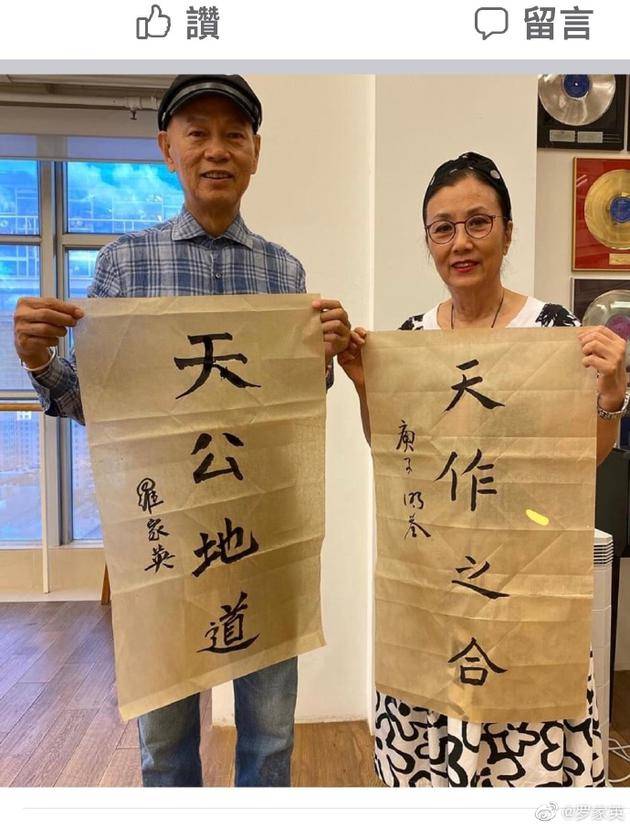 讚
留言
天公地道
羅家英
天作之合
庚子 明荃
@罗家英